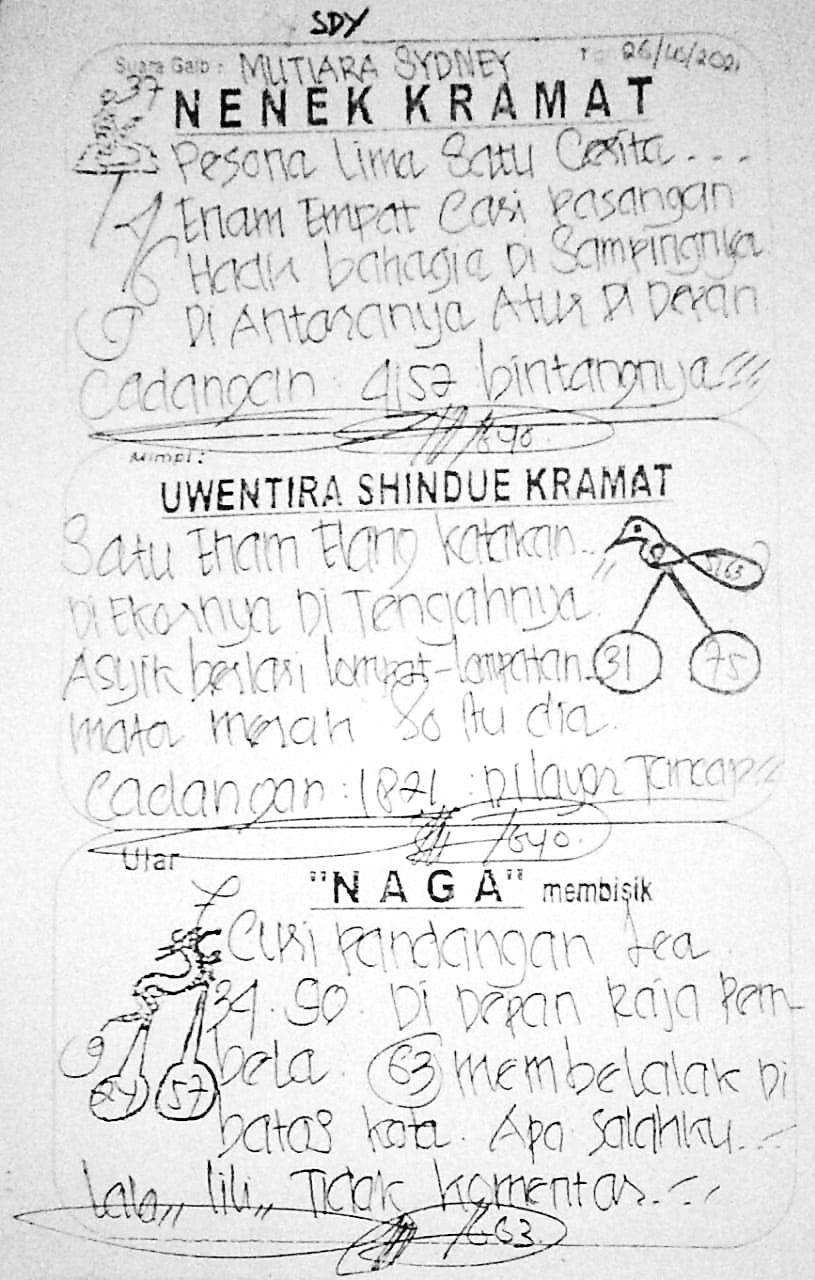 SDY
Suara Gaib : MUTIARA SYDNEY Tgl 26/10/2021
37
NENEK KRAMAT
Pesona Lima Satu Cerita...
Enam Empat Cari Pasangan
Hadir bahagia Di Sampingnya
Di Antaranya Atur Di Depan
Cadangan : 4157 bintangnya
/640.
Mimpi :
UWENTIRA SHINDUE KRAMAT
Satu Enam Elang katakan...
Di Ekornya Di Tengahnya
Asyik berlari lompat-lompatan
31 75
mata merah 80 Itu dia.
Cadangan : 1821 : Di layar Tancap
/640.
Ular
"NAGA" membisik
Curi Pandangan
34.90. Di Depan Raja Pem-
bela. 63 membelalak Di
9
24 57
batas kota. Apa Salahku...
lala,, lili,, Tidak komentar...
/663.